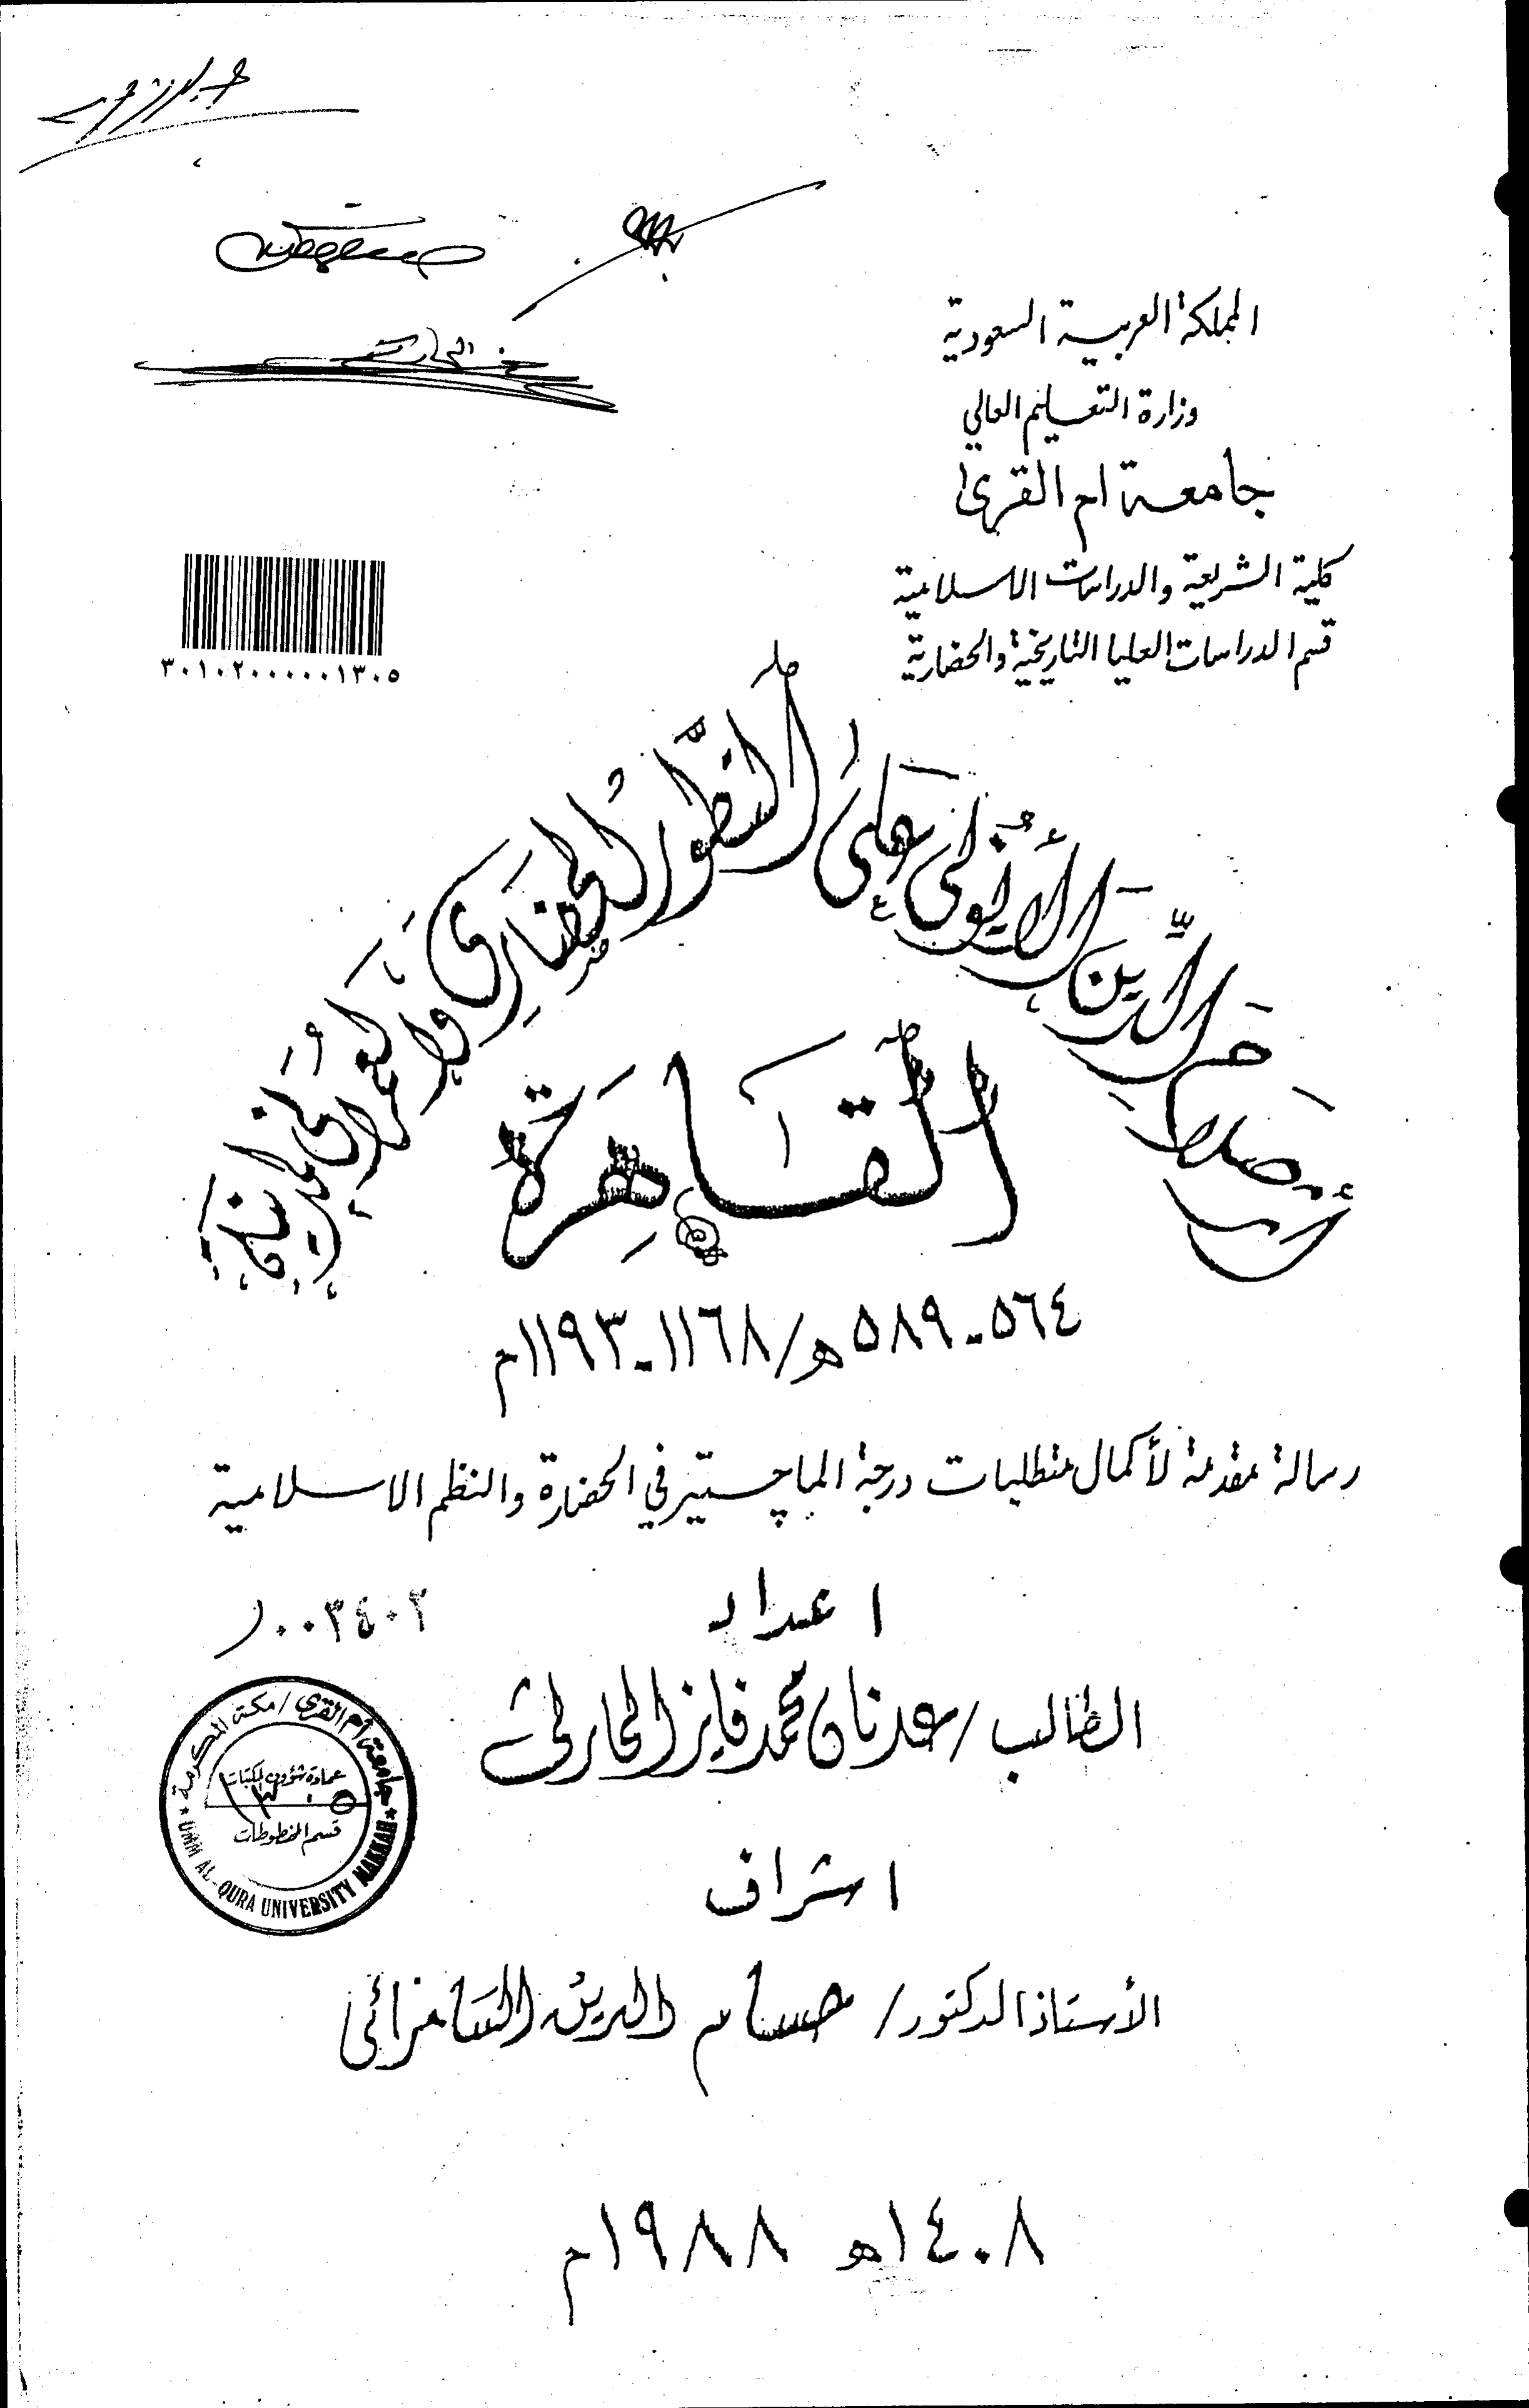 المملكة العربية السعودية
وزارة التعليم العالي
جامعة ام القرى
كلية الشريعة والدراسات الاسلامية
قسم الدراسات العليا التاريخية والحضارية
٣٠١٠٢٠٠٠٠٠١٣٠٥
صلاح الدين الأيوبي على التطور الحضاري والعمراني لمدينة
القاهرة
٥٦٤-٥٨٩هـ/١١٦٨-١١٩٣م
رسالة مقدمة لأكمال متطلبات درجة الماجستير في الحضارة والنظم الاسلامية
اعداد
٠٠٣٤٠٢
الطالب/عدنان محمد فايز الحارثي
جامعة أم القرى / مكة المكرمة
عمادة شؤون المكتبات
١٣٠٥
قسم المخطوطات
UMM AL-QURA UNIVERSITY MAKKAH
اشراف
الأستاذ الدكتور/ حسام الدين السامرائي
١٤٠٨هـ ١٩٨٨م